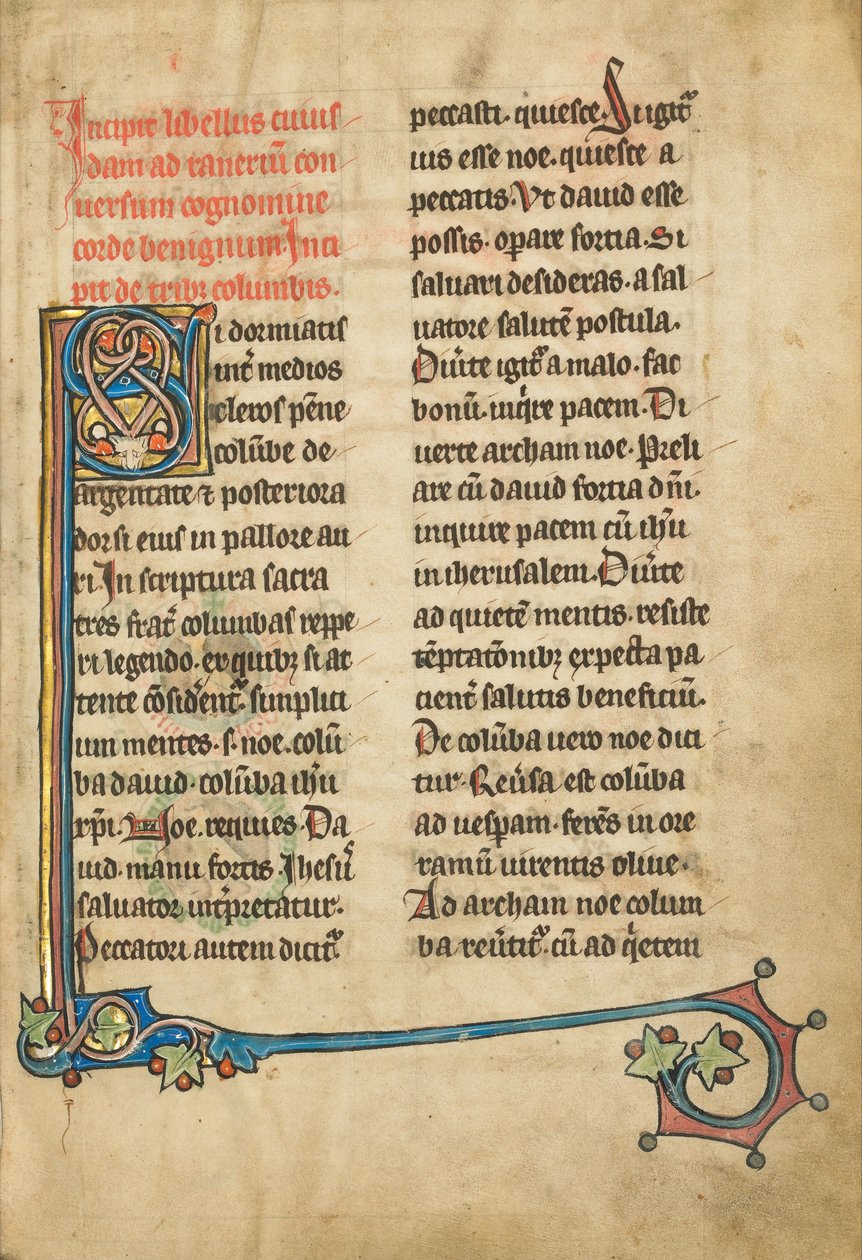 Incipit libellus cuius
dam ad raneriū con
uersum cognomine
corde benignum. Inci
pit de tribꝫ columbis.
Si dormiatis
int̄ medios
cleros pēne
colūbe de
argentate ⁊ posteriora
dorsi eius in pallore au
ri. In scriptura sacra
tres frat̄ columbas reppe
ri legendo. ex quibꝫ si at
tente cōsiderent᷑. simplici
um mentes. s. noe. colū
ba dauid. colūba ihū
xp̄i. Noe. requies. Da
uid. manu fortis. Ihesus̄
saluator int̄pretatur.
Peccatori autem dicit᷑
peccasti. quiesce. Si igit᷑
uis esse noe. quiesce a
peccatis. Vt dauid esse
possis. oꝑare fortia. Si
saluari desideras. a sal
uatore salutē postula.
Diūte igit᷑ a malo. fac
bonū. inqͥre pacem. Di
uerte archam noe. Preli
are cū dauid fortia dn̄i.
inquire pacem cū ihū
in iherusalem. Diūte
ad quietē mentis. resiste
tēptatōnibꝫ expecta pa
cient̄ salutis beneficiū.
De colūba uero noe dici
tur. Reūsa est colūba
ad uesꝑam. ferēs in ore
ramū uirentis oliue.
Ad archam noe colum
ba reūtit᷑. cū ad qͥetem